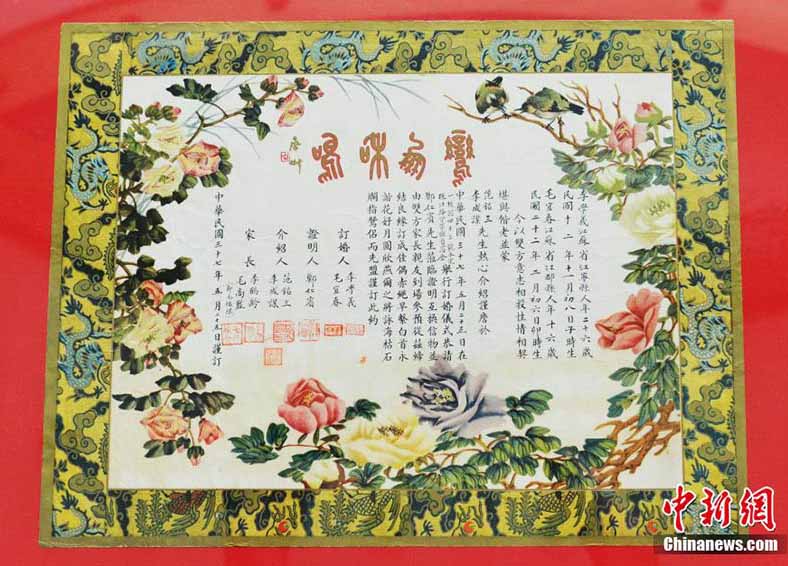 鸞翔和鳴
李學義江蘇省江寧縣人年二十六歲
民國十二年十一月初八日子時生
毛宜春江蘇省江都縣人年十六歲
民國二十二年二月初六日卯時生
今以雙方意志相投性情相契
堪與偕老並蒙
范銘三
李成謀先生熱心介紹謹詹於
中華民國三十七年五月二十三日在
舉行訂婚儀式恭請
鄭仕賓先生蒞臨證明互換信物並
由雙方家長親友到場參預從茲締
結良緣訂成佳偶赤繩早繫白首永
諧花好月圓欣燕爾之將詠海枯石
爛指鴛侶而先盟謹訂此約
訂婚人 李學義
毛宜春
證明人 鄭仕賓
介紹人 范銘三
李成謀
家長 李鶴齡
中華民國三十七年五月二十三日謹訂
中新網
Chinanews.com